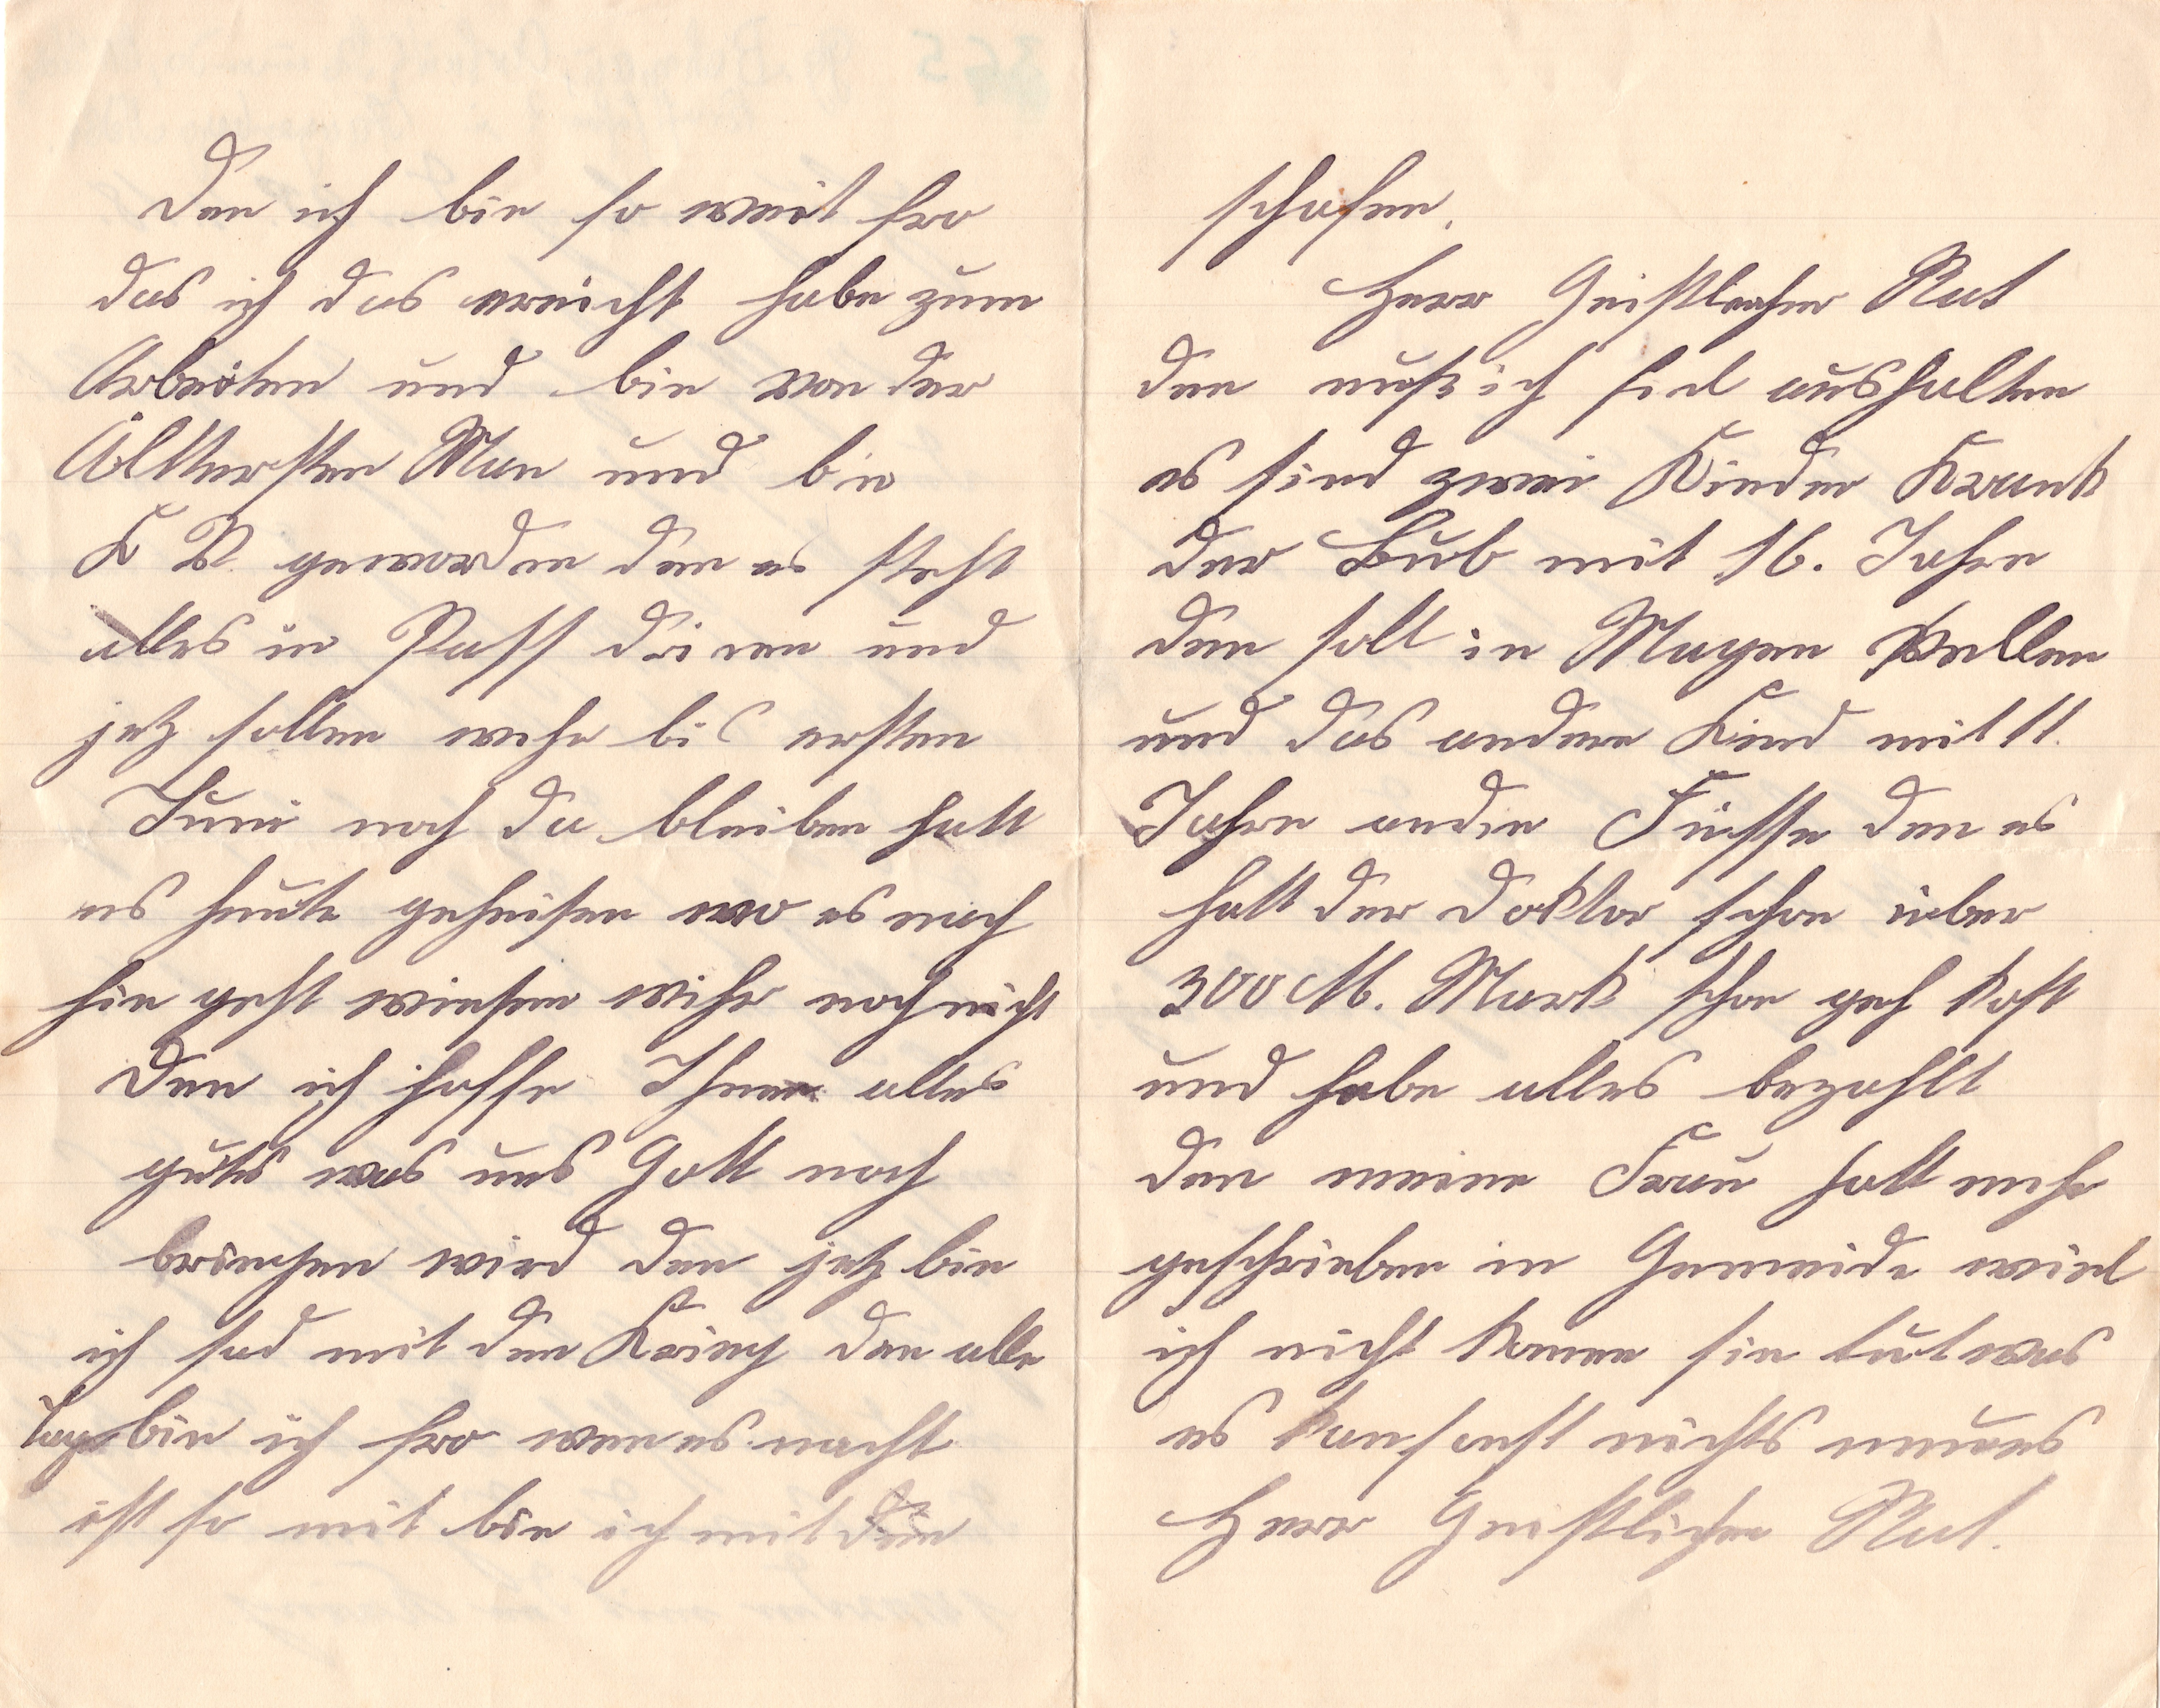 Den ich bin so weit fro
das ich das ereicht habe zum
Arbeiten und bin von der
Älttersten Man und bin
K V. geworden den es steht
alles in Pass drinen und
jetz sollen wihr bis ersten
Juni noch da bleiben hatt
es heute geheisen wo es noch
hin geht wiesen wihr noch nicht
Den ich hoffe Ihnen alles
gutes was uns Gott noch
bringen wird den jetz bin
ich sad mit den Krieg den alle
tage bin ich fro wen es nacht
ist so mit bin ich mit den
schafen.
Herr Geistlicher Rat
den muß ich fiel aushalten
es sind zwei Kinder Krank
der Bub mit 16. Jahre
den soll in Magen
und das andere Kind mit 11.
Jahre an die Füsse den es
hatt der Doktor schon über
300 M. Mark schon geh kost
und habe alles bezahlt
den meine Frau hatt mihr
geschrieben in Gemeide wird
ich nicht kenen sie tut was
es kan sonst nichts neues
Herr Geistlicher Rat.